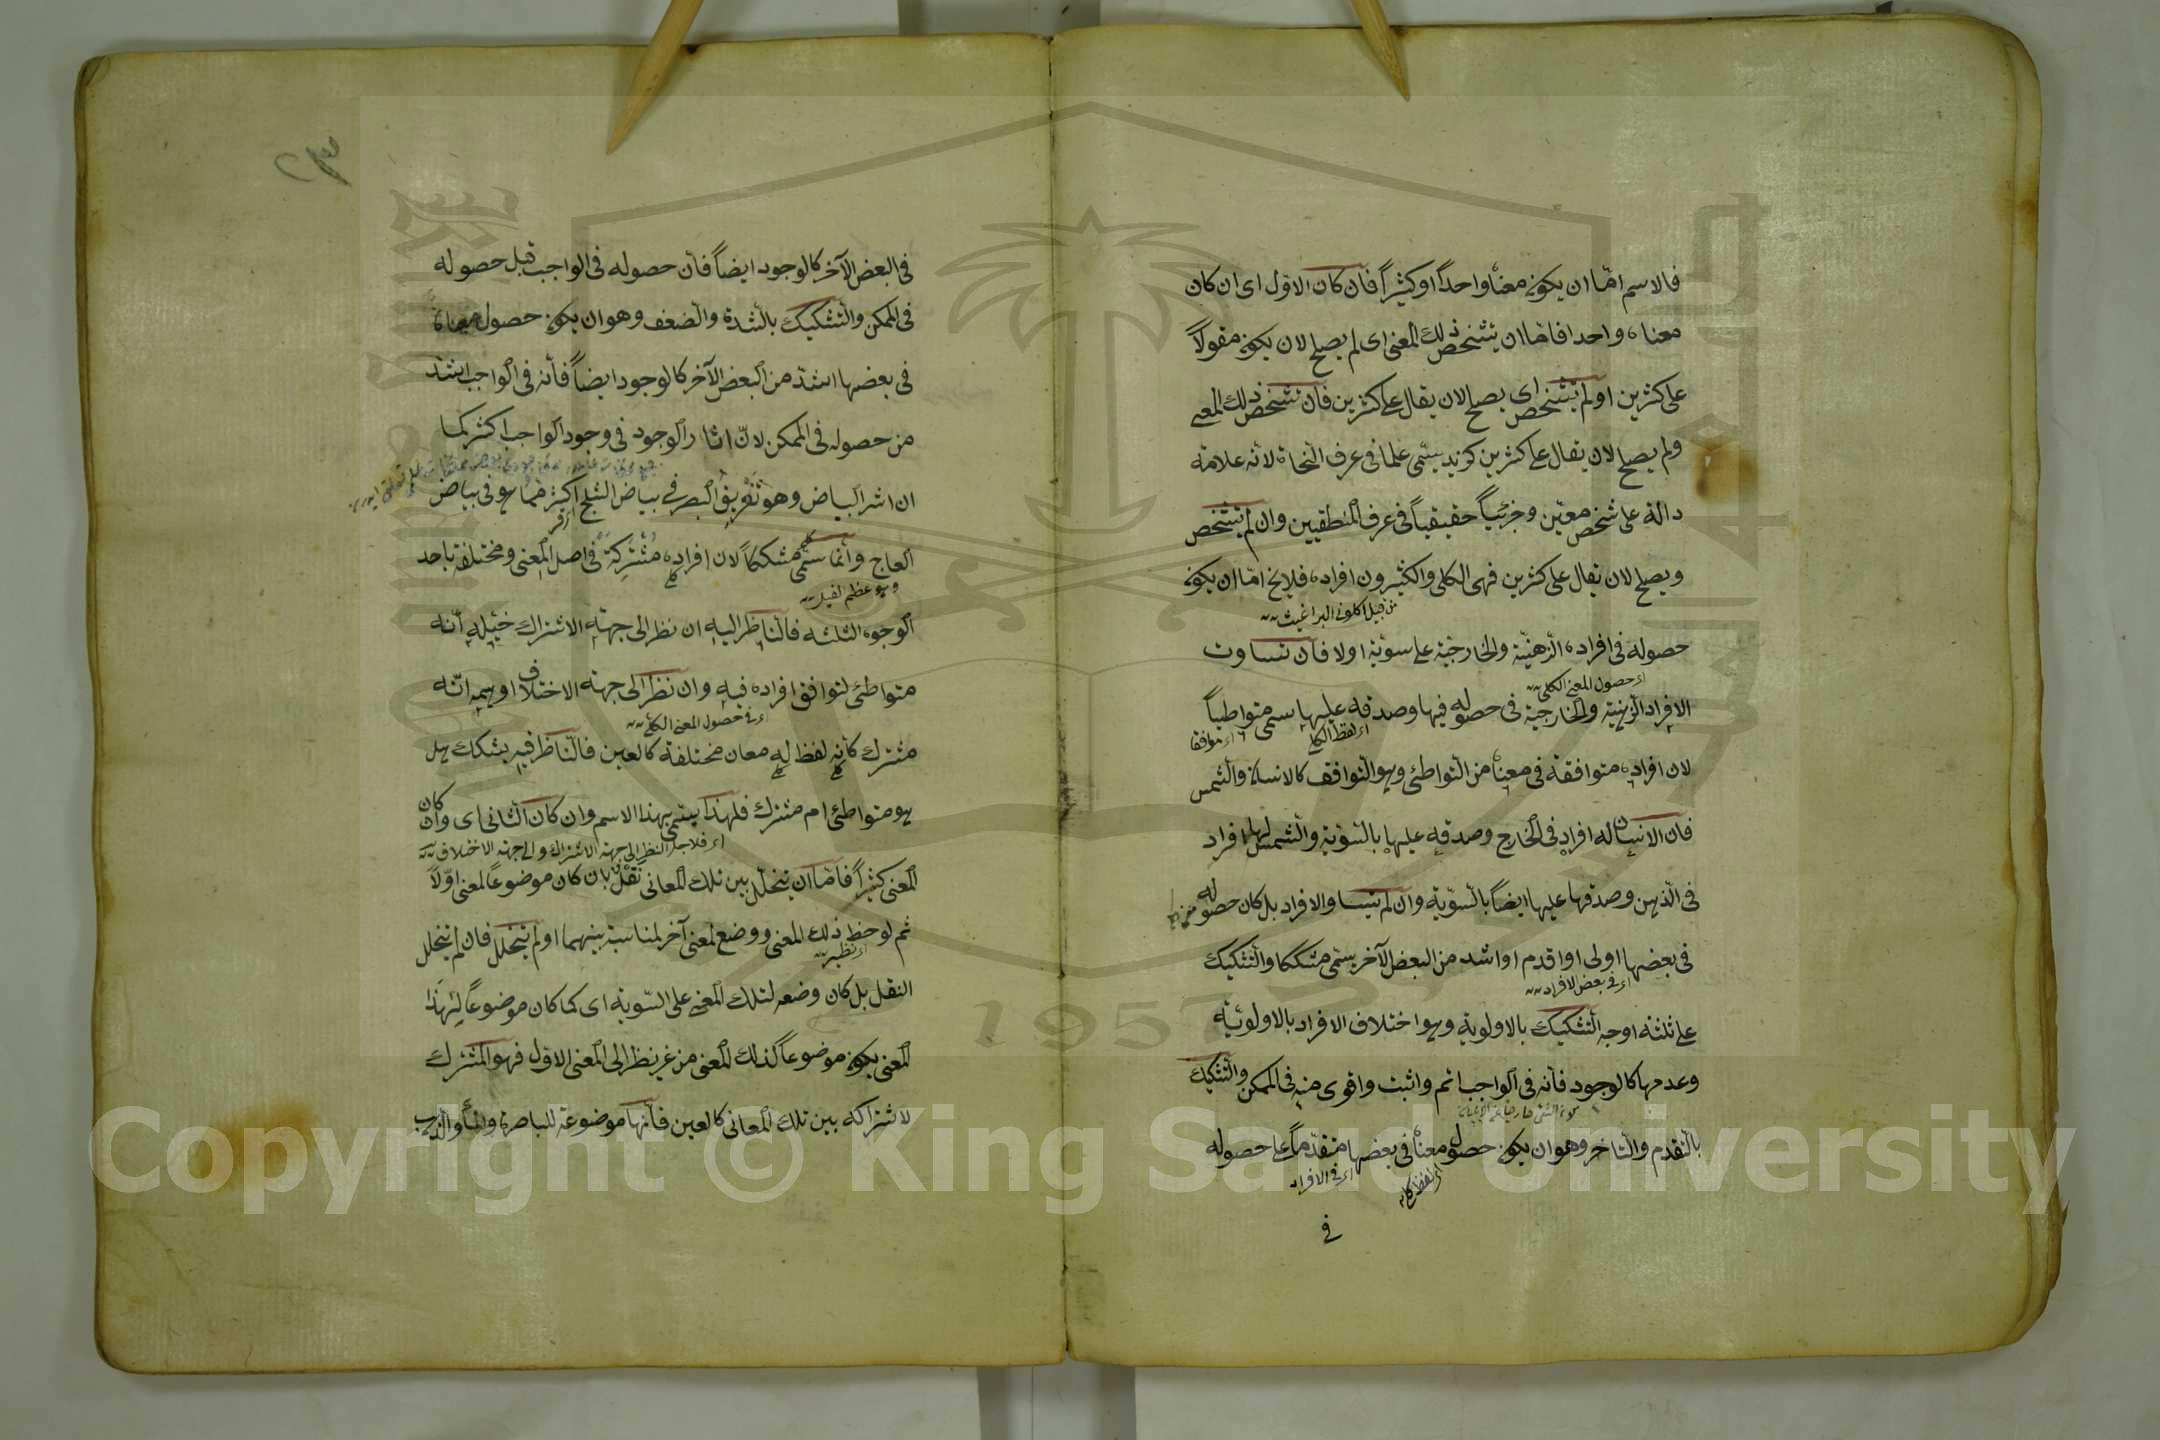 فالاسم امّا ان يكون معناه واحدًا او كثيرًا فان كان الاوّل اى ان كان
معناه واحدا فامّا ان يتشخص ذلك المعنى اى لم يصلح لان يكون مقولاً
على كثرين او لم يتشخص اى يصلح لان يقال على كثرين فان تشخص ذلك المعنى
ولم يصلح لان يقال على كثرين كزيد يسمّى علما فى عرف النحاة لانه علامة
دالة على شخص معيّن وجزئياً حقيقياً فى عرف المنطقيين وان لم يتشخص
ويصلح لان يقال على كثرين فهى الكلى والكثيرون افراده فلا يخ امّا ان يكون
من قبيل اكلونى البراغيث
حصوله فى افراده الذهنيّة والخارجيّة على سويّة اولا فان تساوت
اى حصول المعنى الكلى
الافراد الذهنية والخارجية فى حصوله فيها وصدقه عليها يسمى متواطياً
اى لفظ الكلى
اى متوافقا
لان افراده متوافقة فى معناه من التواطئ وهو التوافق كالانسان والشمس
فان الانسان له افراد فى الخارج وصدقه عليها بالسّويّة والشمس لها افراد
فى الذهن وصدقها عليها ايضاً بالسّويّة وان لم يتساو الافراد بل كان حصوله
فى بعضها اولى او اقدم او اشد من البعض الآخر يسمّى مشككا والتشكيك
اى فى بعض الافراد
على ثلثة اوجه التشكيك بالاولوية وهو اختلاف الافراد بالاولويّة
وعدمها كالوجود فانه فى الواجب اتم واثبت واقوى منه فى الممكن والتشكيك
بالتقدم والتاخر وهو ان يكون حصول معناه فى بعضها متقدّماً على حصوله
اى فى الافراد
فى
فى البعض الآخر كالوجود ايضاً فان حصوله فى الواجب قبل حصوله
فى الممكن والتشكيك بالشدة والضعف وهو ان يكون حصول معناه
فى بعضها اشدّ من البعض الآخر كالوجود ايضاً فانه فى الواجب اشد
من حصوله فى الممكن لانّ اثار الوجود فى وجود الواجب اكثر كما
ان اثر البياض وهو تفريق البصر فى بياض الثلج اكثر ممّا هو فى بياض
العاج وانّما سمّى مشككاً لان افراده مشتركة فى اصل المعنى ومختلفة باحد
وهو عظم الفيل
الوجوه الثلثة فالناظر اليه ان نظر الى جهة الاشتراك خيّله انه
متواطئ لتوافق افراده فيه وان نظر الى جهة الاختلاف اوهمه انّه
اى فى حصول المعنى الكلى
مشترك كانه لفظ له معان مختلفة كالعين فالناظر فيه يشكك هل
هو متواطئ ام مشترك فلهذا يسمّى بهذا الاسم وان كان الثانى اى وان كان
اى فلاجل النظر الى جهة الاشتراك والى جهة الاختلاف
المعنى كثيراً فامّا ان يتخلل بين تلك المعانى نقل بان كان موضوعاً لمعنى اوّلاً
ثم لوحظ ذلك المعنى ووضع لمعنى آخر لمناسبة بينهما او لم يتخلل فان لم يتخلل
اى نظر
النقل بل كان وضعه لتلك المعنى على السّوية اى كما كان موضوعاً لهذا
المعنى يكون موضوعاً لذلك المعنى من غير نظر الى المعنى الاول فهو المشترك
لاشتراكه بين تلك المعانى كالعين فانّها موضوعة للباصرة والماء والذهب
Copyright © King Saud University
1957